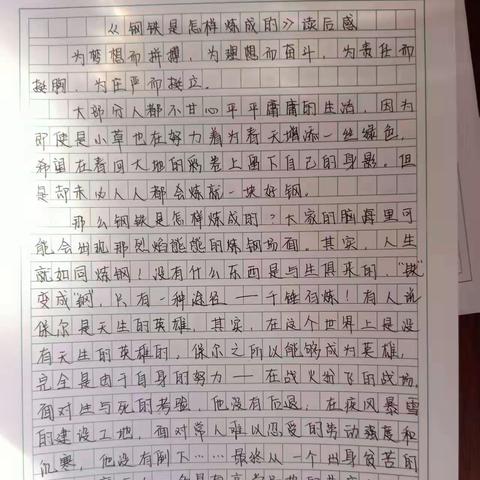 《钢铁是怎样炼成的》读后感
为梦想而拼搏，为理想而奋斗，为责任而
挺胸，为庄严而挺立。
大部分人都不甘心平平庸庸的生活，因为
即使是小草也在努力着为春天增添一丝绿色，
希望在春回大地的彩卷上留下自己的身影。但
是却未必人人都会炼就一块好钢。
那么钢铁是怎样炼成的？大家的脑海里可
能会出现那烈焰熊熊的炼钢场面。其实，人生
就如同炼钢！没有什么东西是与生俱来的，“铁”
变成“钢”，只有一种途径——千锤百炼！有人说
保尔是天生的英雄，其实，在这个世界上是没
有天生的英雄的，保尔之所以能够成为英雄，
完全是由于自身的努力——在战火纷飞的战场，
面对生与死的考验，他没有后退，在疾风暴雪
的建设工地，面对常人难以忍受的劳动强度和
饥寒，他没有倒下……最终从一个出身贫苦的